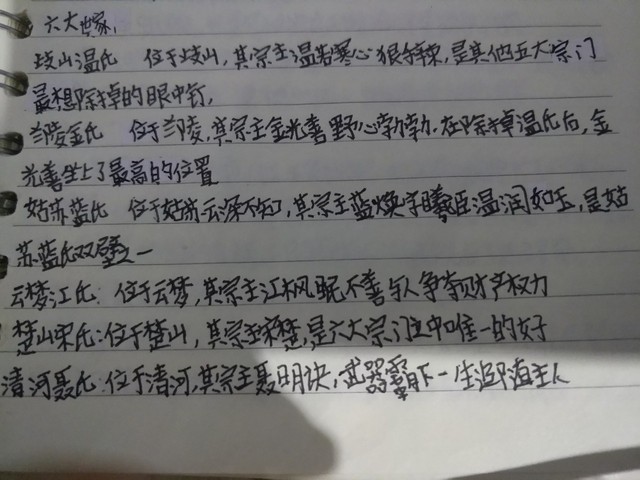 六大世家,
歧山温氏 位于歧山,其宗主温若寒心狠手辣,是其他五大宗门
最想除掉的眼中钉,
兰陵金氏 位于兰陵,其宗主金光善野心勃勃.在除掉温氏后,金
光善坐上了最高的位置
姑苏蓝氏 位于姑苏云深不知,其宗主蓝焕字曦臣温润如玉,是姑
苏蓝氏双壁之一
云梦江氏:位于云梦,其宗主江枫眠不善与人争夺财产权力
楚山宋氏:位于楚山,其宗主宋楚,是六大宗门之中唯一的好
清河聂氏:位于清河,其宗主聂明诀,武器霸下一生追随主人